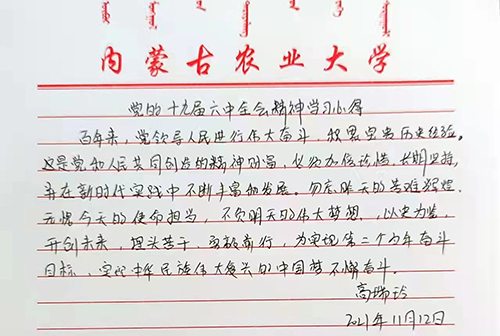 内蒙古农业大学
党的十九届六中全会精神学习心得
百年来，党领导人民进行伟大奋斗，积累宝贵历史经验。
这是党和人民共同创造的精神财富，必须加倍珍惜、长期坚持，
并在新时代实践中不断丰富和发展。勿忘昨天的苦难辉煌，
无愧今天的使命担当，不负明天的伟大梦想，以史为鉴、
开创未来，埋头苦干、勇毅前行，为实现第二个百年奋斗
目标、实现中华民族伟大复兴的中国梦不懈奋斗。
高瑞玲
2021年11月12日